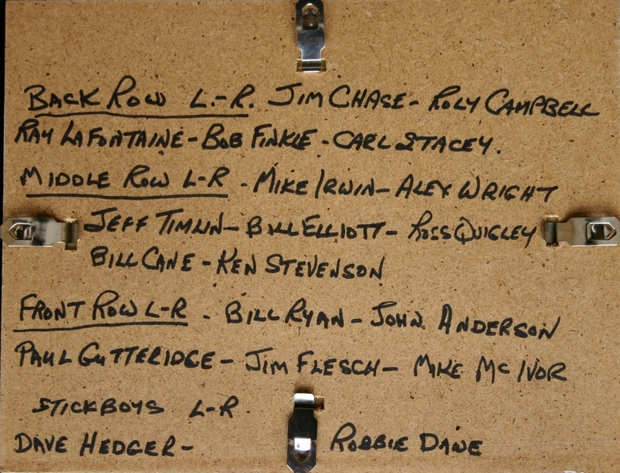 BACK ROW L.-R. JIM CHASE - ROLY CAMPBELL
RAY LAFONTAINE - BOB FINKLE - CARL STACEY.
MIDDLE ROW L-R - MIKE IRWIN - ALEX WRIGHT
JEFF TIMLIN - BILL ELLIOTT - ROSS QUIGLEY
BILL CANE - KEN STEVENSON
FRONT ROW L-R - BILL RYAN - JOHN ANDERSON
PAUL GUTTERIDGE - JIM FLESCH - MIKE MCIVOR
STICKBOYS L-R
DAVE HEDGER - ROBBIE DANE